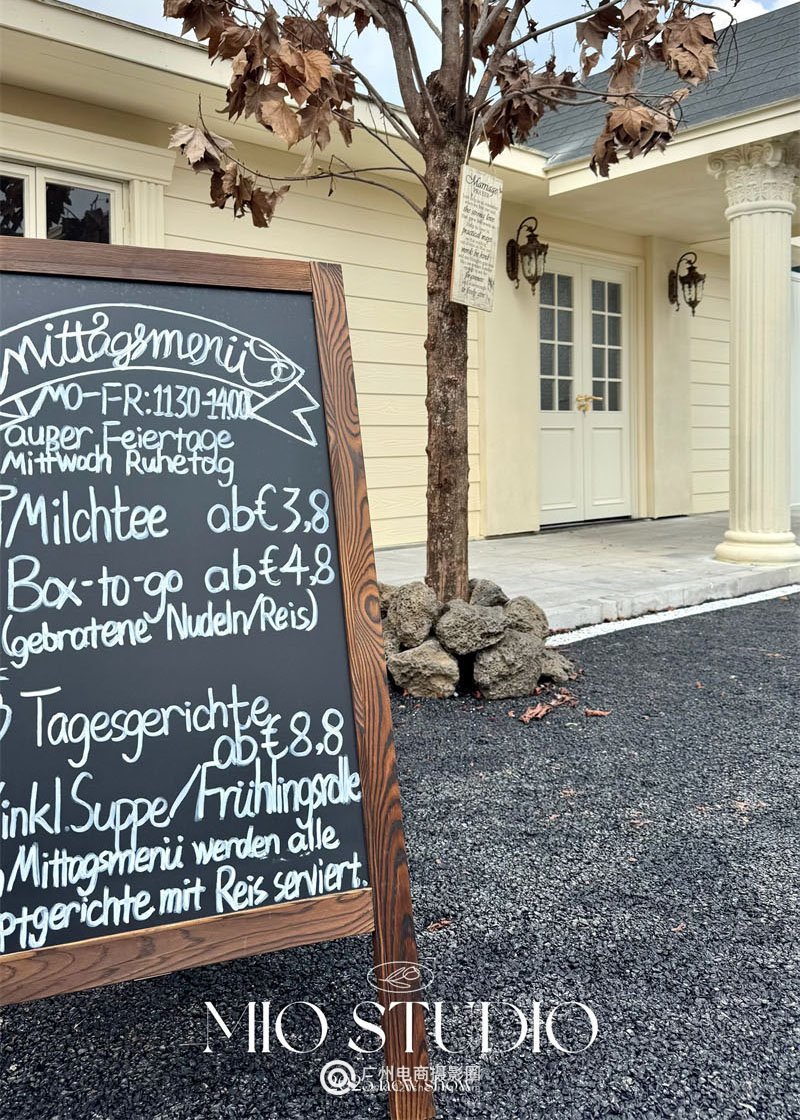 Mittagsmenü
MO-FR:1130-14:00
außer Feiertage
Mittwoch Ruhetag
Milchtee ab€3,8
Box-to-go ab€4,8
(gebratene Nudeln/Reis)
Tagesgerichte
ab€8,8
inkl.Suppe/Frühlingsrolle
Mittagsmenü werden alle
ptgerichte mit Reis serviert.
Marriage
MIO STUDIO
广州电商摄影圈